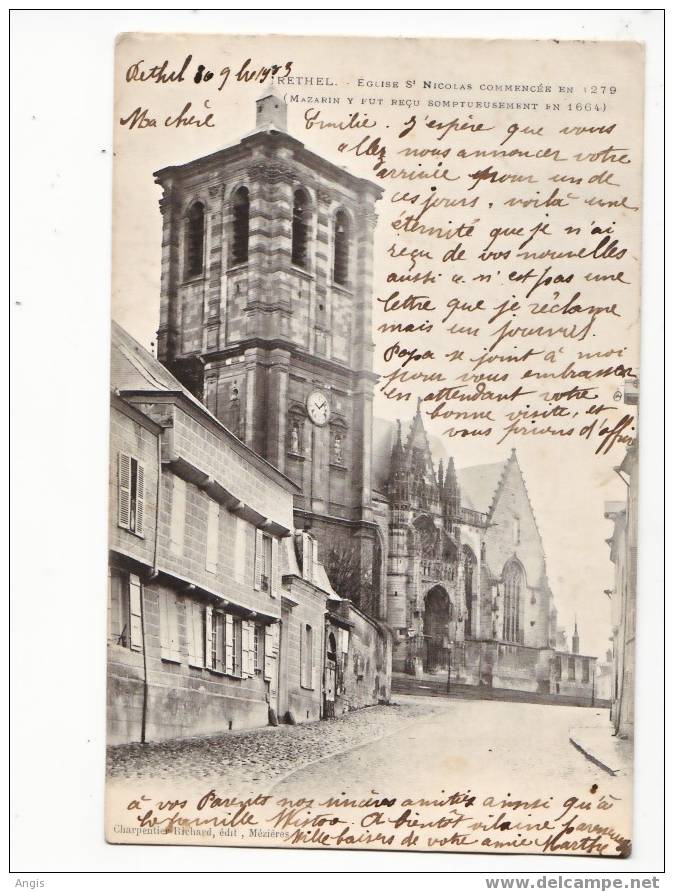 Rethel 30 9bre 1903
RETHEL. - EGLISE St NICOLAS COMMENCÉE EN 1279
(MAZARIN Y FUT REÇU SOMPTUEUSEMENT EN 1664)
Ma chère Emilie. J'espère que vous
allez nous annoncer votre
arrivée pour un de
ces jours, voilà une
éternité que je n'ai
reçu de vos nouvelles
aussi n'est pas une
lettre que je réclame
mais un journal.
Papa se joint à moi
pour vous embrasser
en attendant votre
bonne visite, et
vous prions d'offrir
à vos Parents nos sincères amitiés ainsi qu'à
la famille A bientôt vilaine paresseuse
Mille baisers de votre amie Marthe
Charpentier-Richard, édit, Mézières
Angis
http://www.delcampe.net